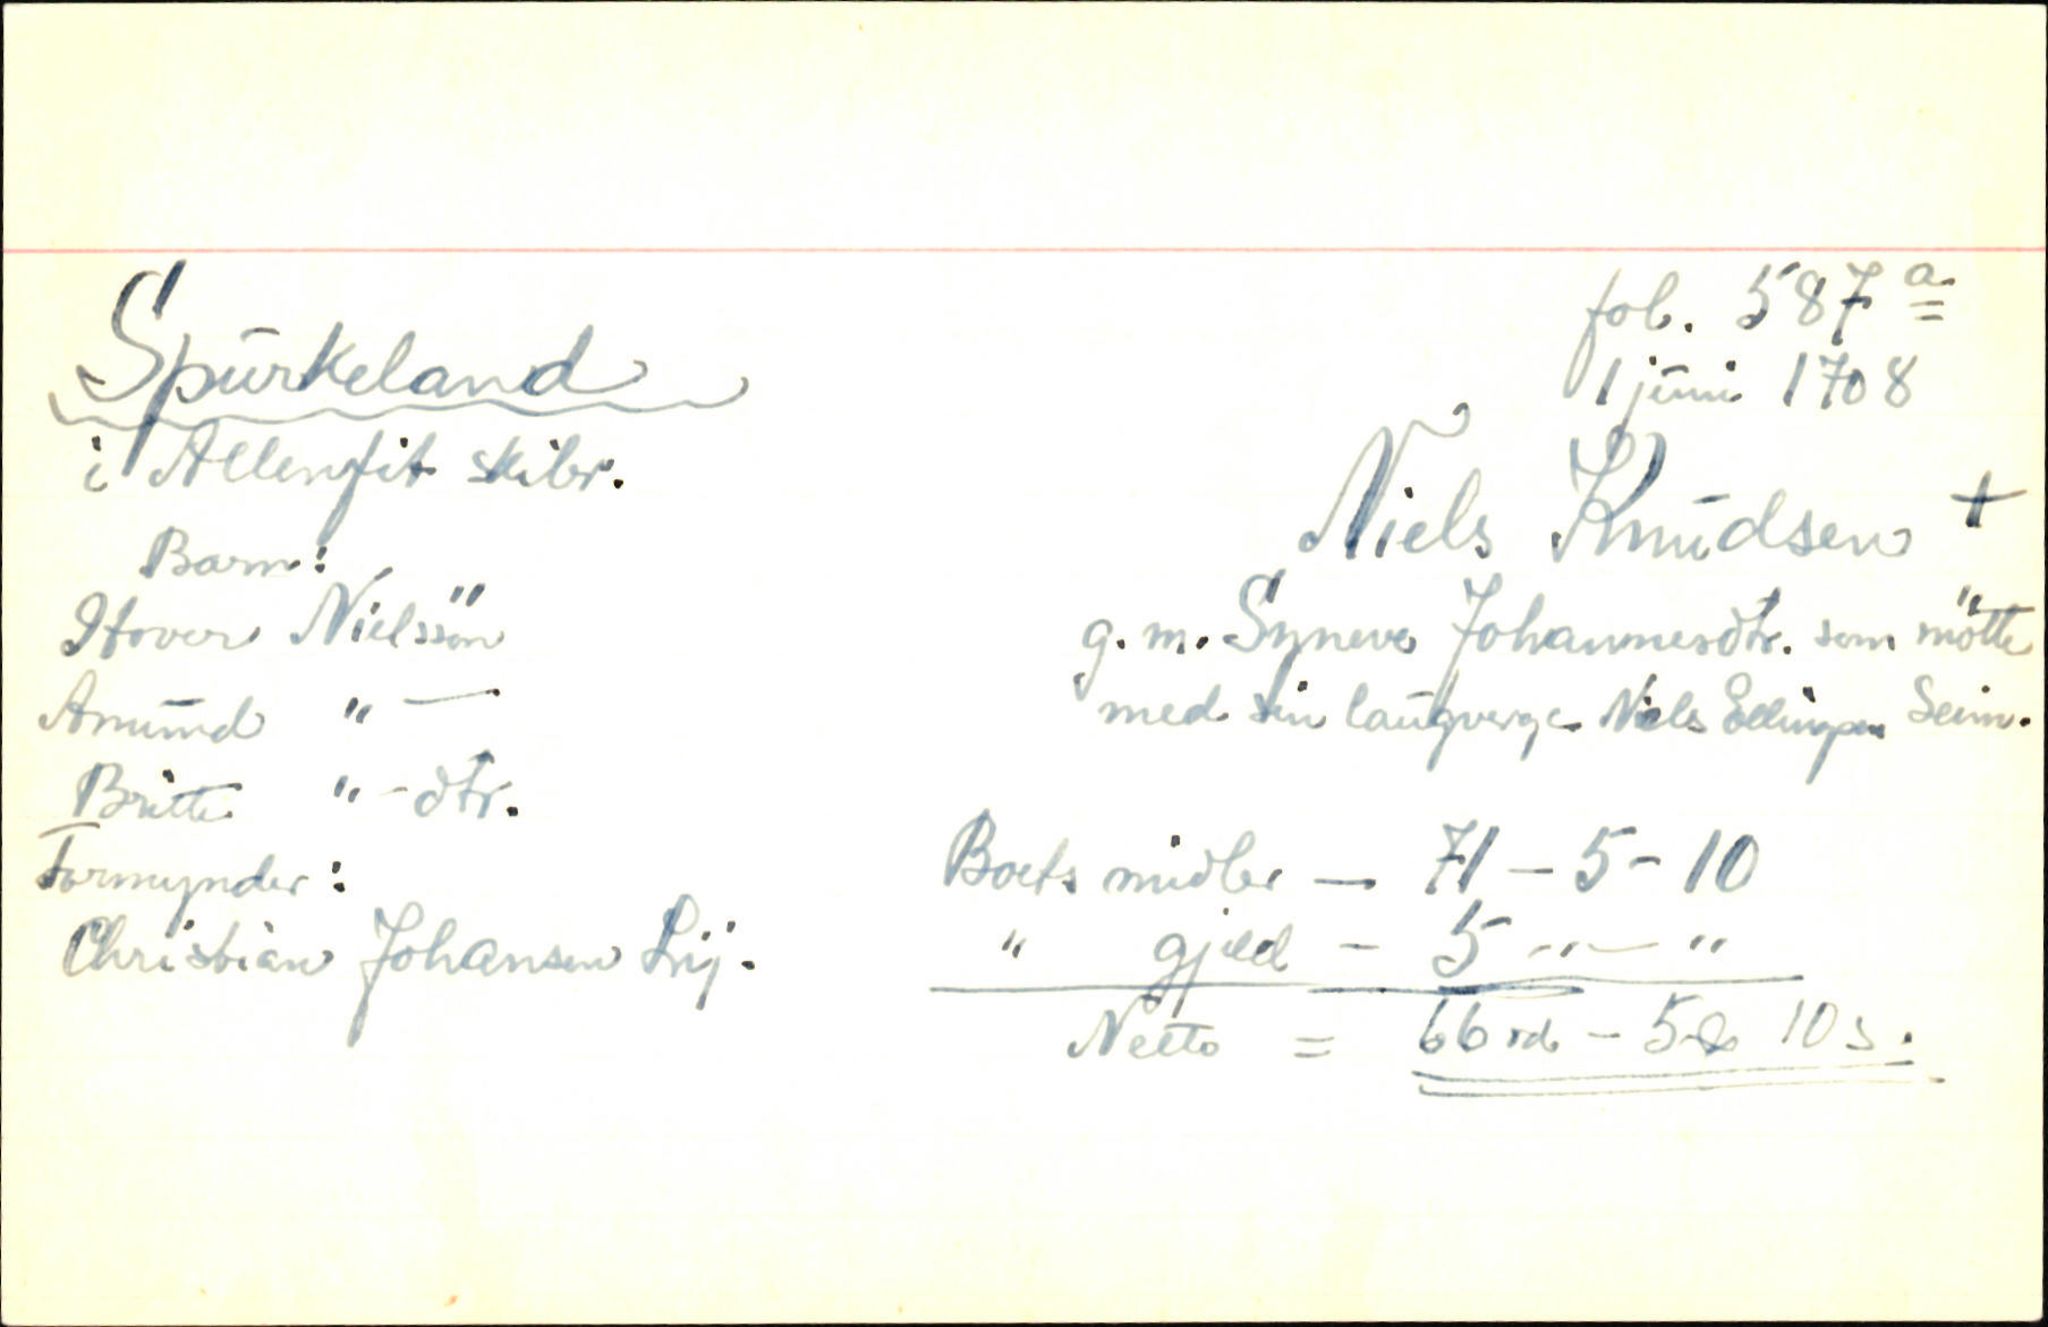 fol. 587 a
1 juni 1708
Spurkeland
i Allenfit skibr.
Niels Knudsen +
Barn:
Hover Nielssön
g. m. Syneve Johannesdtr. som mötte
Amund " —
med sin laugverge Niels Ellingsen Seim.
Britte " - dtr.
Formynder:
Boets midler — 71 - 5 - 10
Christian Johansen Lij.
" gjeld - 5 - " - "
Netto = 66 rd - 5 10 s.